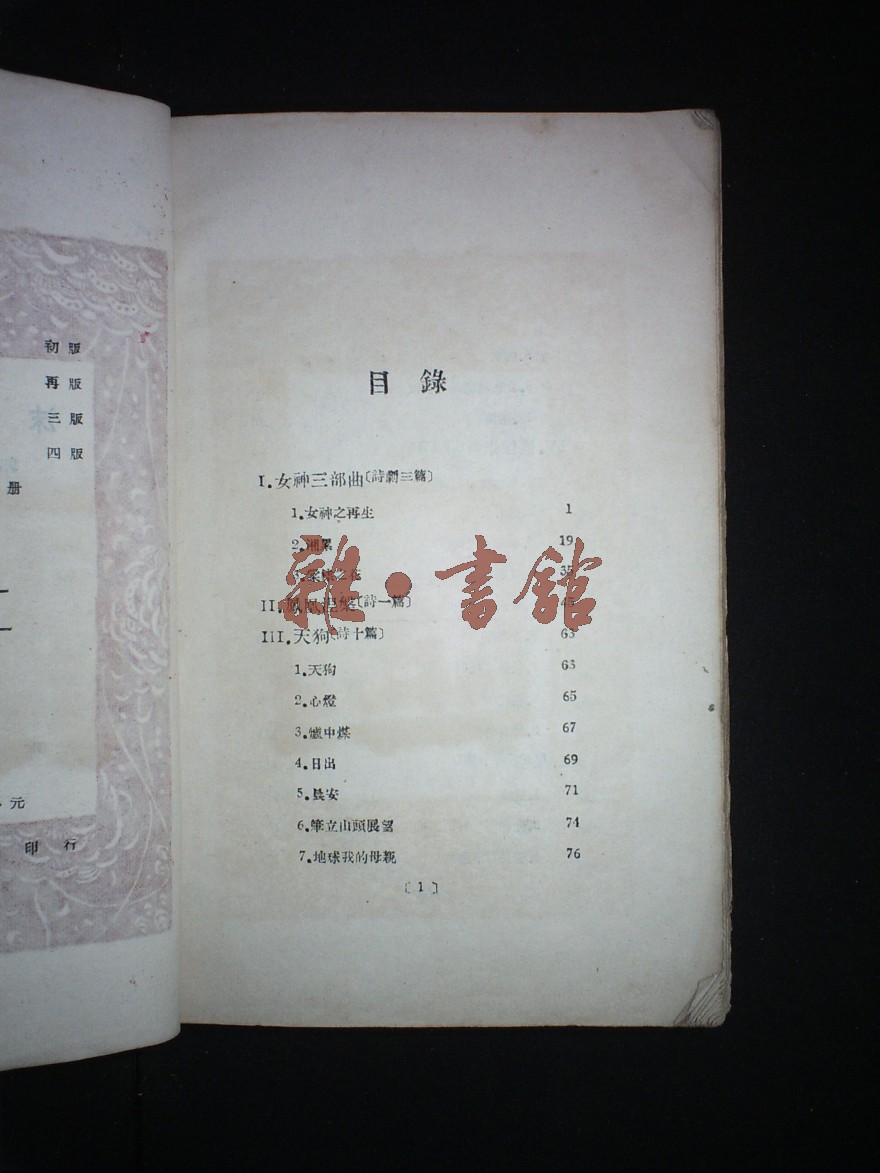 初版
再版
三版
四版
册
元
印行
目錄
I.女神三部曲〔詩劇三篇〕
1.女神之再生 1
2.湘累 19
之花 35
II.鳳凰涅槃〔詩一篇〕
III.天狗〔詩十篇〕 63
1.天狗 63
2.心燈 65
3.爐中煤 67
4.日出 69
5.晨安 71
6.筆立山頭展望 74
7.地球我的母親 76
〔1〕
雜·書館